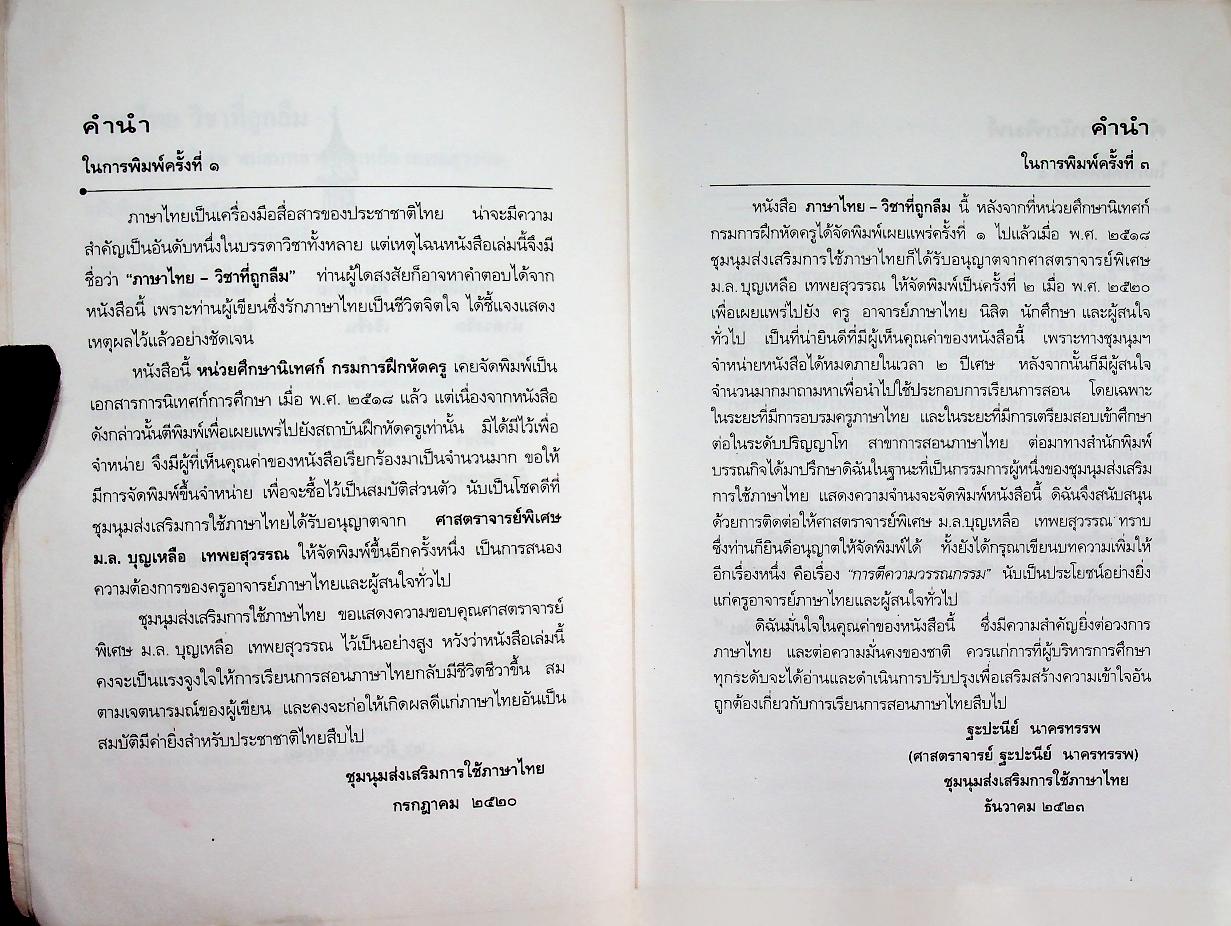 คำนำ
ในการพิมพ์ครั้งที่ ๑
ภาษาไทยเป็นเครื่องมือสื่อสารของประชาชาติไทย น่าจะมีความ
สำคัญเป็นอันดับหนึ่งในบรรดาวิชาทั้งหลาย แต่เหตุไฉนหนังสือเล่มนี้จึงมี
ชื่อว่า “ภาษาไทย – วิชาที่ถูกลืม” ท่านผู้ใดสงสัยก็อาจหาคำตอบได้จาก
หนังสือนี้ เพราะท่านผู้เขียนซึ่งรักภาษาไทยเป็นชีวิตจิตใจ ได้ชี้แจงแสดง
เหตุผลไว้แล้วอย่างชัดเจน
หนังสือนี้ หน่วยศึกษานิเทศก์ กรมการฝึกหัดครู เคยจัดพิมพ์เป็น
เอกสารการนิเทศก์การศึกษา เมื่อ พ.ศ. ๒๕๑๘ แล้ว แต่เนื่องจากหนังสือ
ดังกล่าวนั้นตีพิมพ์เพื่อเผยแพร่ไปยังสถาบันฝึกหัดครูเท่านั้น มิได้มีไว้เพื่อ
จำหน่าย จึงมีผู้ที่เห็นคุณค่าของหนังสือเรียกร้องมาเป็นจำนวนมาก ขอให้
มีการจัดพิมพ์ขึ้นจำหน่าย เพื่อจะซื้อไว้เป็นสมบัติส่วนตัว นับเป็นโชคดีที่
ชุมนุมส่งเสริมการใช้ภาษาไทยได้รับอนุญาตจาก ศาสตราจารย์พิเศษ
ม.ล. บุญเหลือ เทพยสุวรรณ ให้จัดพิมพ์ขึ้นอีกครั้งหนึ่ง เป็นการสนอง
ความต้องการของครูอาจารย์ภาษาไทยและผู้สนใจทั่วไป
ชุมนุมส่งเสริมการใช้ภาษาไทย ขอแสดงความขอบคุณศาสตราจารย์
พิเศษ ม.ล. บุญเหลือ เทพยสุวรรณ ไว้เป็นอย่างสูง หวังว่าหนังสือเล่มนี้
คงจะเป็นแรงจูงใจให้การเรียนการสอนภาษาไทยกลับมีชีวิตชีวาขึ้น สม
ตามเจตนารมณ์ของผู้เขียน และคงจะก่อให้เกิดผลดีแก่ภาษาไทยอันเป็น
สมบัติมีค่ายิ่งสำหรับประชาชาติไทยสืบไป
ชุมนุมส่งเสริมการใช้ภาษาไทย
กรกฎาคม ๒๕๒๐
คำนำ
ในการพิมพ์ครั้งที่ ๓
หนังสือ ภาษาไทย – วิชาที่ถูกลืม นี้ หลังจากที่หน่วยศึกษานิเทศก์
กรมการฝึกหัดครูได้จัดพิมพ์เผยแพร่ครั้งที่ ๑ ไปแล้วเมื่อ พ.ศ. ๒๕๑๘
ชุมนุมส่งเสริมการใช้ภาษาไทยก็ได้รับอนุญาตจากศาสตราจารย์พิเศษ
ม.ล. บุญเหลือ เทพยสุวรรณ ให้จัดพิมพ์เป็นครั้งที่ ๒ เมื่อ พ.ศ. ๒๕๒๐
เพื่อเผยแพร่ไปยัง ครู อาจารย์ภาษาไทย นิสิต นักศึกษา และผู้สนใจ
ทั่วไป เป็นที่น่ายินดีที่มีผู้เห็นคุณค่าของหนังสือนี้ เพราะทางชุมนุมฯ
จำหน่ายหนังสือได้หมดภายในเวลา ๒ ปีเศษ หลังจากนั้นก็มีผู้สนใจ
จำนวนมากมาถามหาเพื่อนำไปใช้ประกอบการเรียนการสอน โดยเฉพาะ
ในระยะที่มีการอบรมครูภาษาไทย และในระยะที่มีการเตรียมสอบเข้าศึกษา
ต่อในระดับปริญญาโท สาขาการสอนภาษาไทย ต่อมาทางสำนักพิมพ์
บรรณกิจได้มาปรึกษาดิฉันในฐานะที่เป็นกรรมการผู้หนึ่งของชุมนุมส่งเสริม
การใช้ภาษาไทย แสดงความจำนงจะจัดพิมพ์หนังสือนี้ ดิฉันจึงสนับสนุน
ด้วยการติดต่อให้ศาสตราจารย์พิเศษ ม.ล.บุญเหลือ เทพยสุวรรณ ทราบ
ซึ่งท่านก็ยินดีอนุญาตให้จัดพิมพ์ได้ ทั้งยังได้กรุณาเขียนบทความเพิ่มให้
อีกเรื่องหนึ่ง คือเรื่อง “การตีความวรรณกรรม” นับเป็นประโยชน์อย่างยิ่ง
แก่ครูอาจารย์ภาษาไทยและผู้สนใจทั่วไป
ดิฉันมั่นใจในคุณค่าของหนังสือนี้ ซึ่งมีความสำคัญยิ่งต่อวงการ
ภาษาไทย และต่อความมั่นคงของชาติ ควรแก่การที่ผู้บริหารการศึกษา
ทุกระดับจะได้อ่านและดำเนินการปรับปรุงเพื่อเสริมสร้างความเข้าใจอัน
ถูกต้องเกี่ยวกับการเรียนการสอนภาษาไทยสืบไป
ฐะปะนีย์ นาครทรรพ
(ศาสตราจารย์ ฐะปะนีย์ นาครทรรพ)
ชุมนุมส่งเสริมการใช้ภาษาไทย
ธันวาคม ๒๕๒๓